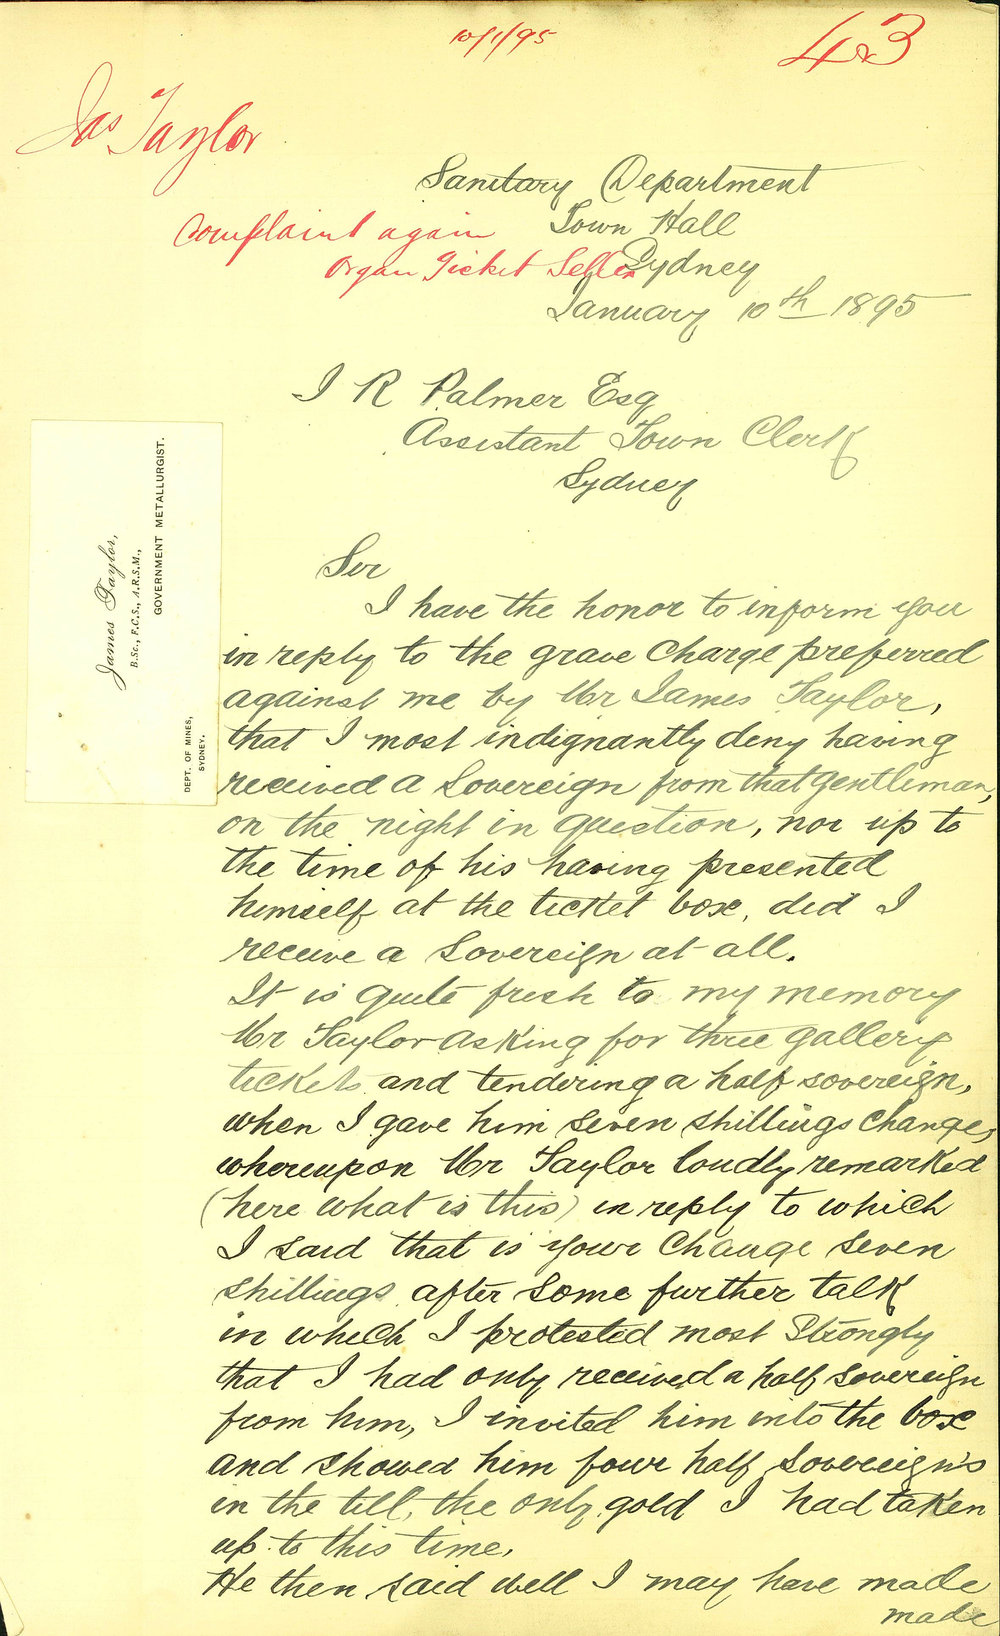 10/1/95
43
Jas Taylor
Sanitary Department
Complaint again Town Hall
Organ Ticket Seller Sydney
January 10th 1895
J R Palmer Esq
Assistant Town Clerk
Sydney
James Taylor,
B.Sc., F.C.S., A.R.S.M.,
GOVERNMENT METALLURGIST.
DEPT. OF MINES,
SYDNEY.
Sir
I have the honor to inform you
in reply to the grave Charge preferred
against me by Mr James Taylor,
that I most indignantly deny having
received a Sovereign from that gentleman,
on the night in question, nor up to
the time of his having presented
himself at the ticket box, did I
receive a Sovereign at all.
It is quite fresh to my memory
Mr Taylor asking for three gallery
tickets and tendering a half sovereign,
when I gave him seven shillings change,
whereupon Mr Taylor loudly remarked
(here what is this) in reply to which
I said that is your change seven
shillings after some further talk
in which I protested most Strongly
that I had only received a half sovereign
from him, I invited him into the box
and showed him four half Sovereign's
in the till, the only gold I had taken
up to this time.
He then said well I may have made
made